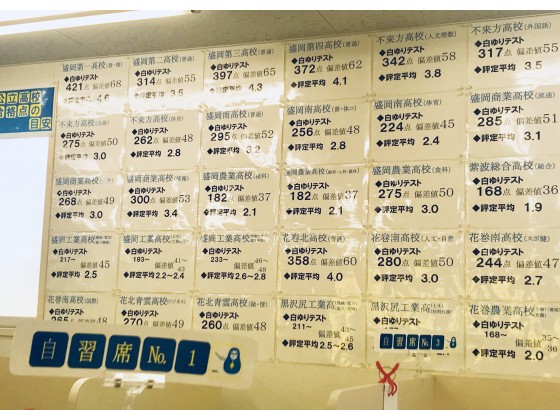 公立高校
合格点の
目安
盛岡第一高校(普・理)
◆白ゆりテスト
421点 偏差値68
◆評定平均 4.6
盛岡第二高校(普通)
◆白ゆりテスト
314点 偏差値55
◆評定平均 3.5
盛岡第三高校(普通)
◆白ゆりテスト
397点 偏差値65
◆評定平均 4.3
盛岡第四高校(普通)
◆白ゆりテスト
372点 偏差値62
◆評定平均 4.1
不来方高校(人文理数)
◆白ゆりテスト
342点 偏差値58
◆評定平均 3.8
不来方高校(外国語)
◆白ゆりテスト
317点 偏差値55
◆評定平均 3.5
不来方高校(芸術)
◆白ゆりテスト
275点 偏差値50
◆評定平均 3.0
不来方高校(体育)
◆白ゆりテスト
262点 偏差値48
◆評定平均 2.8
盛岡南高校(普通)
◆白ゆりテスト
295点 偏差値52
◆評定平均 3.2
盛岡南高校
◆白ゆりテスト
256点 偏差値48
◆評定平均 2.8
盛岡南高校(体育)
◆白ゆりテスト
224点 偏差値45
◆評定平均 2.4
盛岡商業高校(流通)
◆白ゆりテスト
285点 偏差値51
◆評定平均 3.1
盛岡商業高校
◆白ゆりテスト
268点 偏差値49
◆評定平均 3.0
盛岡商業高校(情報)
◆白ゆりテスト
300点 偏差値53
◆評定平均 3.4
盛岡農業高校
◆白ゆりテスト
182点 偏差値37
◆評定平均 2.1
盛岡農業高校
◆白ゆりテスト
182点 偏差値37
◆評定平均 2.1
盛岡農業高校(食科)
◆白ゆりテスト
275点 偏差値50
◆評定平均 3.0
紫波総合高校(総合)
◆白ゆりテスト
168点 偏差値36
◆評定平均 1.9
盛岡工業高校
◆白ゆりテスト
217~ 偏差値45
◆評定平均 2.5
盛岡工業高校
◆白ゆりテスト
193~ 偏差値 41~43
◆評定平均 2.2~2.4
盛岡工業高校
◆白ゆりテスト
233~ 偏差値 46~48
◆評定平均 2.6~2.8
花巻北高校(普通)
◆白ゆりテスト
358点 偏差値60
◆評定平均 4.0
花巻南高校(人文・自然)
◆白ゆりテスト
280点 偏差値50
◆評定平均 3.0
花巻南高校(スポ健)
◆白ゆりテスト
244点 偏差値47
◆評定平均 2.7
花巻南高校(国際)
◆白ゆりテスト
265点 偏差値48
花北青雲高校(ビジネス)
◆白ゆりテスト
270点 偏差値49
花北青雲高校
◆白ゆりテスト
260点 偏差値48
黒沢尻工業高
◆白ゆりテスト
211~ 偏差値 43~45
◆評定平均 2.5~2.6
黒沢尻工業高
◆白ゆりテスト
花巻農業高校
◆白ゆりテスト
168~ 偏差値 35~36
◆評定平均 2.0
自習席No.1
自習席No.3